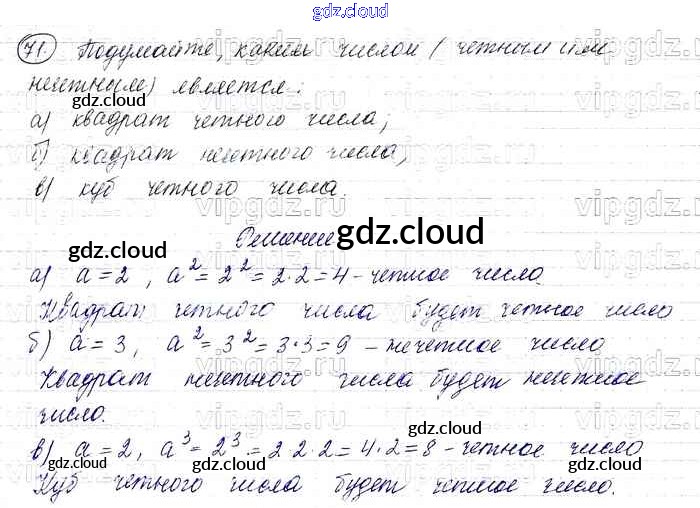 gdz.cloud
71. Подумайте, каким числом (четным или
нечетным) является:
gdz.cloud gdz.cloud
а) квадрат четного числа;
б) квадрат нечетного числа;
в) куб четного числа.
vipgdz.ru
Решение
gdz.cloud gdz.cloud
а) a = 2, a² = 2² = 2·2 = 4 - четное число.
Квадрат четного числа будет четное число
б) a = 3, a² = 3² = 3·3 = 9 - нечетное число
Квадрат нечетного числа будет нечетное
число.
gdz.cloud gdz.cloud
в) a = 2, a³ = 2³ = 2·2·2 = 4·2 = 8 - четное число
Куб четного числа будет четное число.